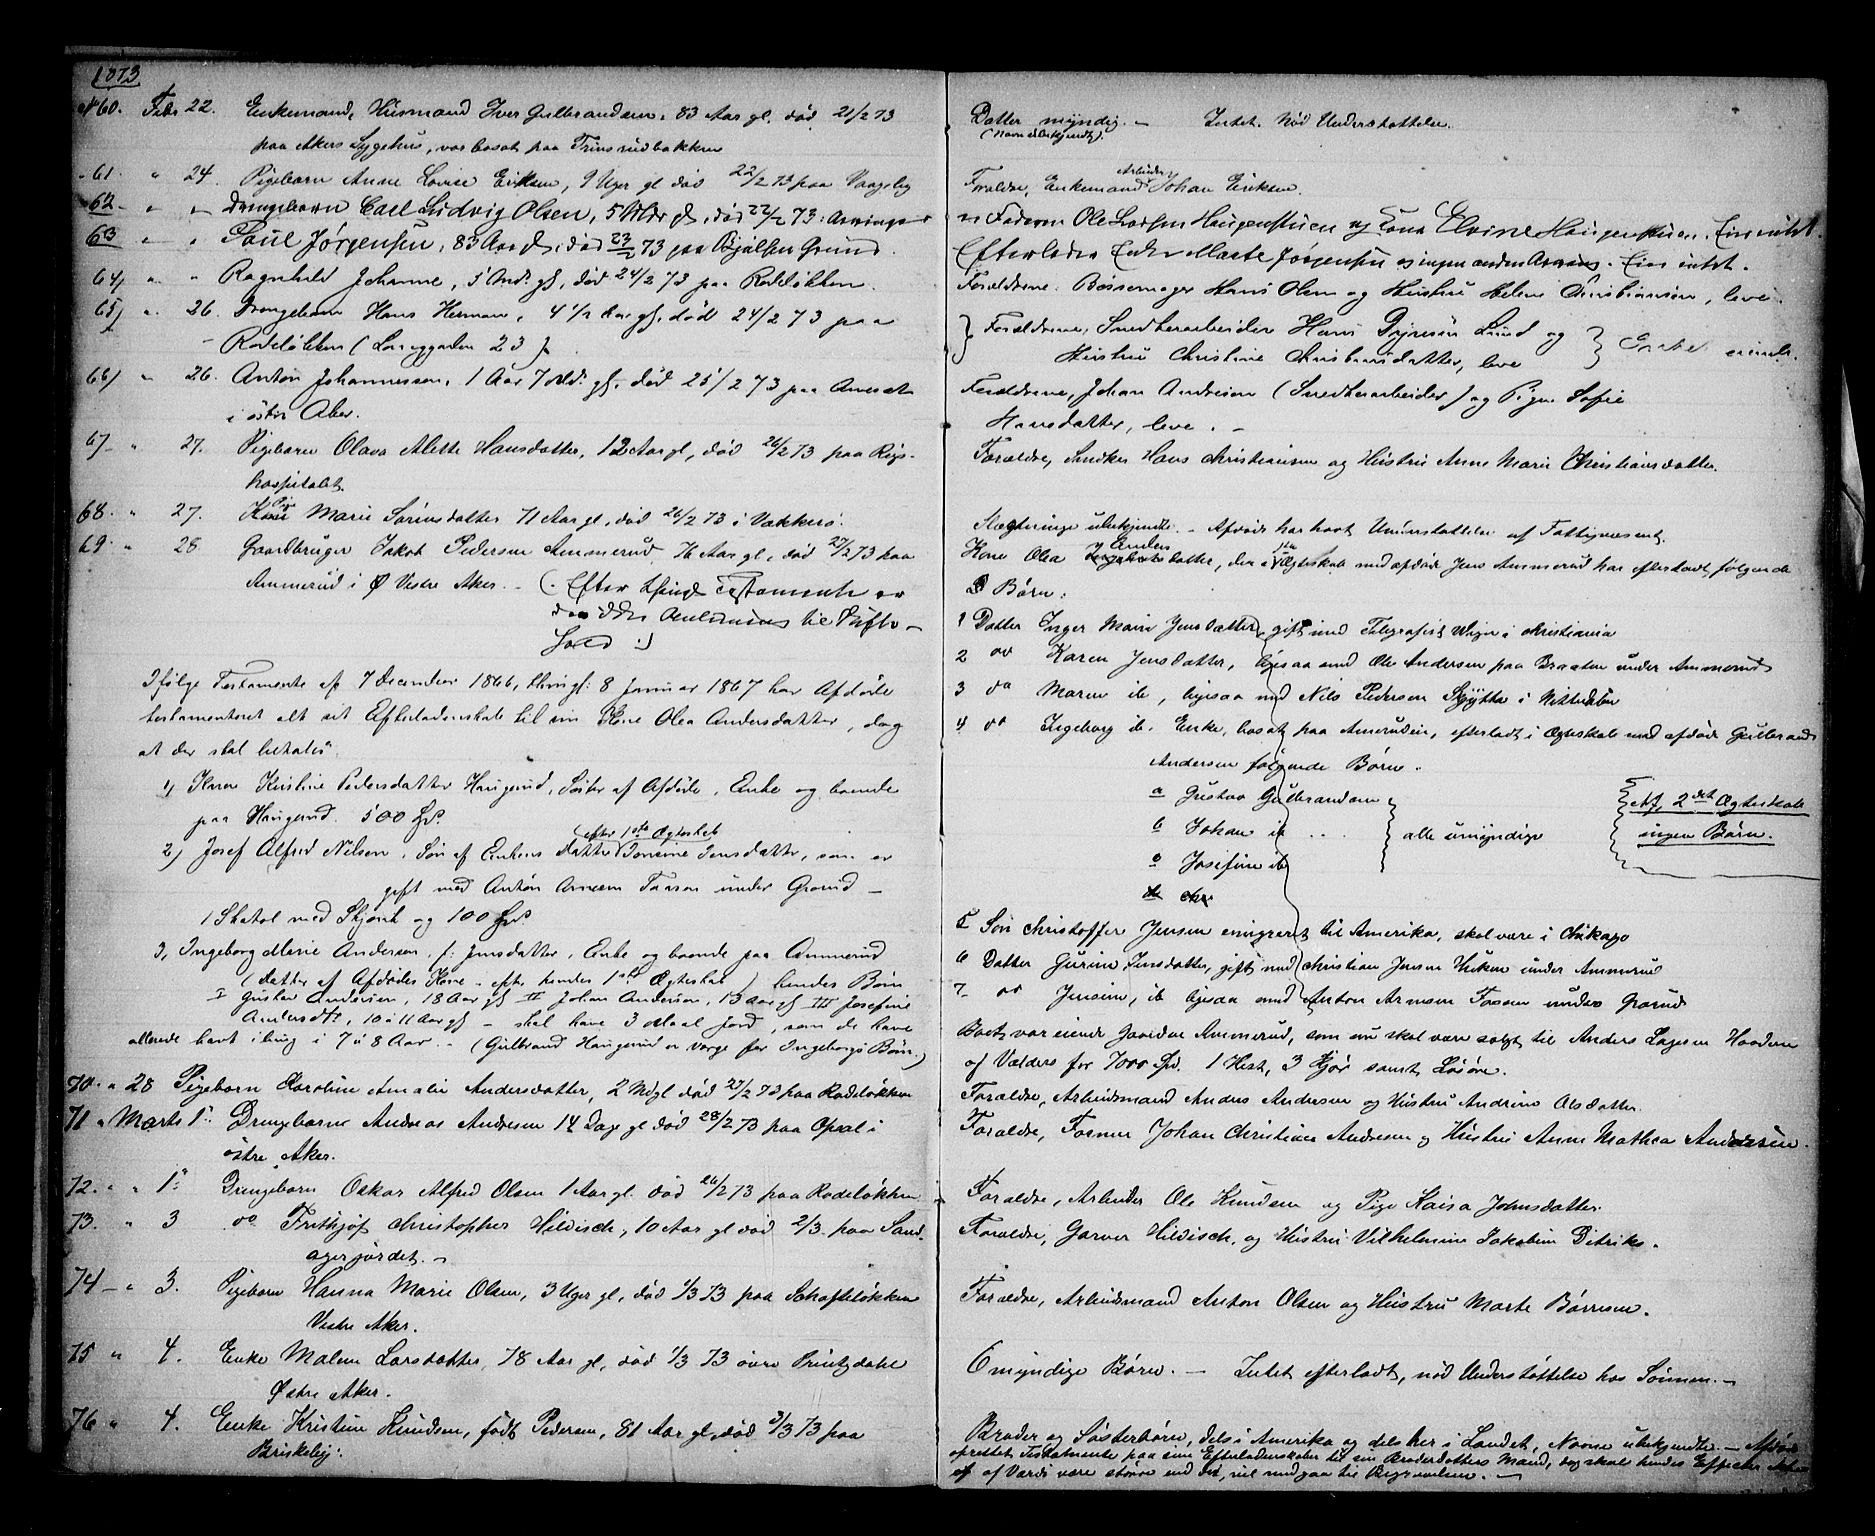 1873
No 60. Febr 22. Enkemand, Husmand Iver Gulbrandsen, 83 Aar gl. død 21/2 73
paa Akers Sygehus, var bosat paa
61. " 24. Pigebarn Anne Lovise Eriksen, 9 Uger gl død 22/2 73 paa
62 - " " Drengebarn Carl Ludvig Olsen, 5 død 22/2 73.
63 " " Poul Jørgensen, 83 Aar død 23/2 73 paa Bjølsen Grund.
64, " " Ragnhild Johanne, 5 Mdr. gl, død 24/2 73 paa Rodeløkken.
65, " 26. Drengebarn Hans Herman, 4 1/2 Aar gl, død 24/2 73 paa
Rodeløkken ( 23 )
66, " 26. Anton Johannessen, 1 Aar 7 Md: gl, død 25/2 73 paa
i østre Aker.
67 - " 27. Pigebarn Olava Alette Hansdatter, 12 Aar gl, død 26/2 73 paa Rigs-
hospitalet.
68. " 27. Pige Marie Sørensdatter 71 Aar gl, død 26/2 73 i Vækkerø.
69. " 28 Gaardbruger Jakob Pedersen Ammerud, 76 Aar gl, død 27/2 73 paa
Ammerud i Ø Vestre Aker. - (. Efter Testamente er
til Skifte-
:)
Ifølge Testamente af 7 December 1866, thingl: 8 Januar 1867 har Afdøde
testamenteret alt sit Efterladenskab til sin Kone Olea Andersdatter, dog
at der skal betales"
1) Karen Kirstine Pedersdatter Haugerud, Søster af Afdøde, Enke og boende
paa Haugerud. 500 Spd.
efter 1ste Ægteskab
2) Josef Alfred Nilsen, Søn af Enkens datter Jensine Jensdatter, som er
gift med Anton Arnesen under Grorud -
1 Skatol med Skjænk og 100 Spd.
3, Ingeborg Marie Andersen, f: Jensdatter, Enke og boende paa Ammerud
(datter af Afdødes Kone - efter hendes 1ste Ægteskab) hendes Børn
I Gustav Andersen, 18 Aar gl II Johan Andersen, 13 Aar gl III Josefine
Andersdtr, 10 à 11 Aar gl - skal have 3 Maal Jord, som de have
allerede havt i brug i 7 à 8 Aar. - (Gulbrand Haugerud er Værge for Ingeborgs Børn.)
70. " 28 Pigebarn Karoline Amalie Andersdatter, 2 Md gl død 27/2 73 paa Rodeløkken
71 " Marts 1" Drengebarn Andreas Andresen 14 Dage gl død 28/2 73 paa Opsal i
østre Aker.
72. " " 1" Drengebarn Oskar Alfred Olsen 1 Aar gl. død 26/2 73 paa Rodeløkken
73. " 3 do Frithjof Christopher Hildisch, 10 Aar gl død 2/3. paa Sand-
agerjordet. -
74 - " 3. Pigebarn Hanna Marie Olsen, 3 Uger gl, død 1/3 73 paa Schafteløkken
Vestre Aker.
75 " 4. Enke Malene Larsdatter, 78 Aar gl, død 1/3 73 øvre Printzdahl
Østre Aker.
76 " 4. Enke Kristine Knudsen, født Pedersen, 81 Aar gl, død 3/3 73 paa
Briskeby:
Datter myndig. - Intet. Nød Understøttelse.
(Navn ubekjendt).
Arbeider
Forældre, Enkemand Johan Eriksen.
Faderen Ole Larsen Haugenstuen og Kona Elvine Haugenstuen. Eier intet.
Efterlader Enke Marte Jørgensen og ingen anden Arving. Eier intet.
Forældrene, Bøssemager Hans Olsen og Hustru Helene Christiansen, leve.
Forældrene, Snedkerarbeider Hans Lund og
Hustru Christine Christiansdatter, leve
Forældrene, Johan Andresen (Snedkerarbeider) og Pige Sofie
Hansdatter, leve. -
Forældre, Snedker Hans Christiansen og Hustru Anne Marie Christiansdatter.
Slægtninge ubekjendte. - Afdøde har havt Understøttelse af Fattigvæsenet.
Anders
Kone Olea datter, der i 1ste Ægteskab med afdøde Jens Ammerud har efterladt følgende
8 Børn:
1 Datter Inger Marie Jensdatter, gift med Telegrafist i Christiania
2 do Karen Jensdatter, ligesaa med Ole Andersen paa Braaten under Ammerud
3 do Maren ib, ligesaa med Nils Pedersen Skytta i Nittedalen
4 do Ingeborg ib. Enke, bosat paa Ameruden, efterladt i Ægteskab med afdøde Gulbrand
Andersen følgende Børn.
a Gustav Gulbrandsen
b Johan ib . . . alle umyndige
c Josefine ib
Af 2det Ægteskab
ingen Børn.
5 Søn Christoffer Jensen emigreret til Amerika, skal være i Chikago
6 Datter Gurine Jensdatter, gift med Christian Jensen under Ammerud
7 - do Jensine, ib ligesaa med Anton Arnesen under Grorud
Boet var eiende Gaarden Ammerud, som nu skal være solgt til Anders Lagesen
af Valders for 7000 Spd. 1 Hest, 3 Kjør samt Løsøre.
Forældre, Arbeidsmand Anders Andersen og Hustru Andrine Olsdatter.
Forældre, Former Johan Christian Andresen og Hustru Anne Mathea Andresen.
Forældre, Arbeider Ole Knudsen og Pige Kaisa Johnsdatter.
Forældre, Garver Hildisch, og Hustru Vilhelmine Jakobine Ditriks.
Forældre, Arbeidsmand Anton Olsen og Hustru Marte Børresen.
6 myndige Børn. - Intet efterladt, nød Understøttelse hos Sønnen. -
Broder og Søsterbørn, dels i Amerika og dels her i Landet, Navne ubekjendte. - Afdøde
oprettet Testamente paa sine Efterladenskaber til sin Broderdatters Mand, dog skal hendes Effecter
af Værdi være større end det, vil medgaa til Begravelsen. -